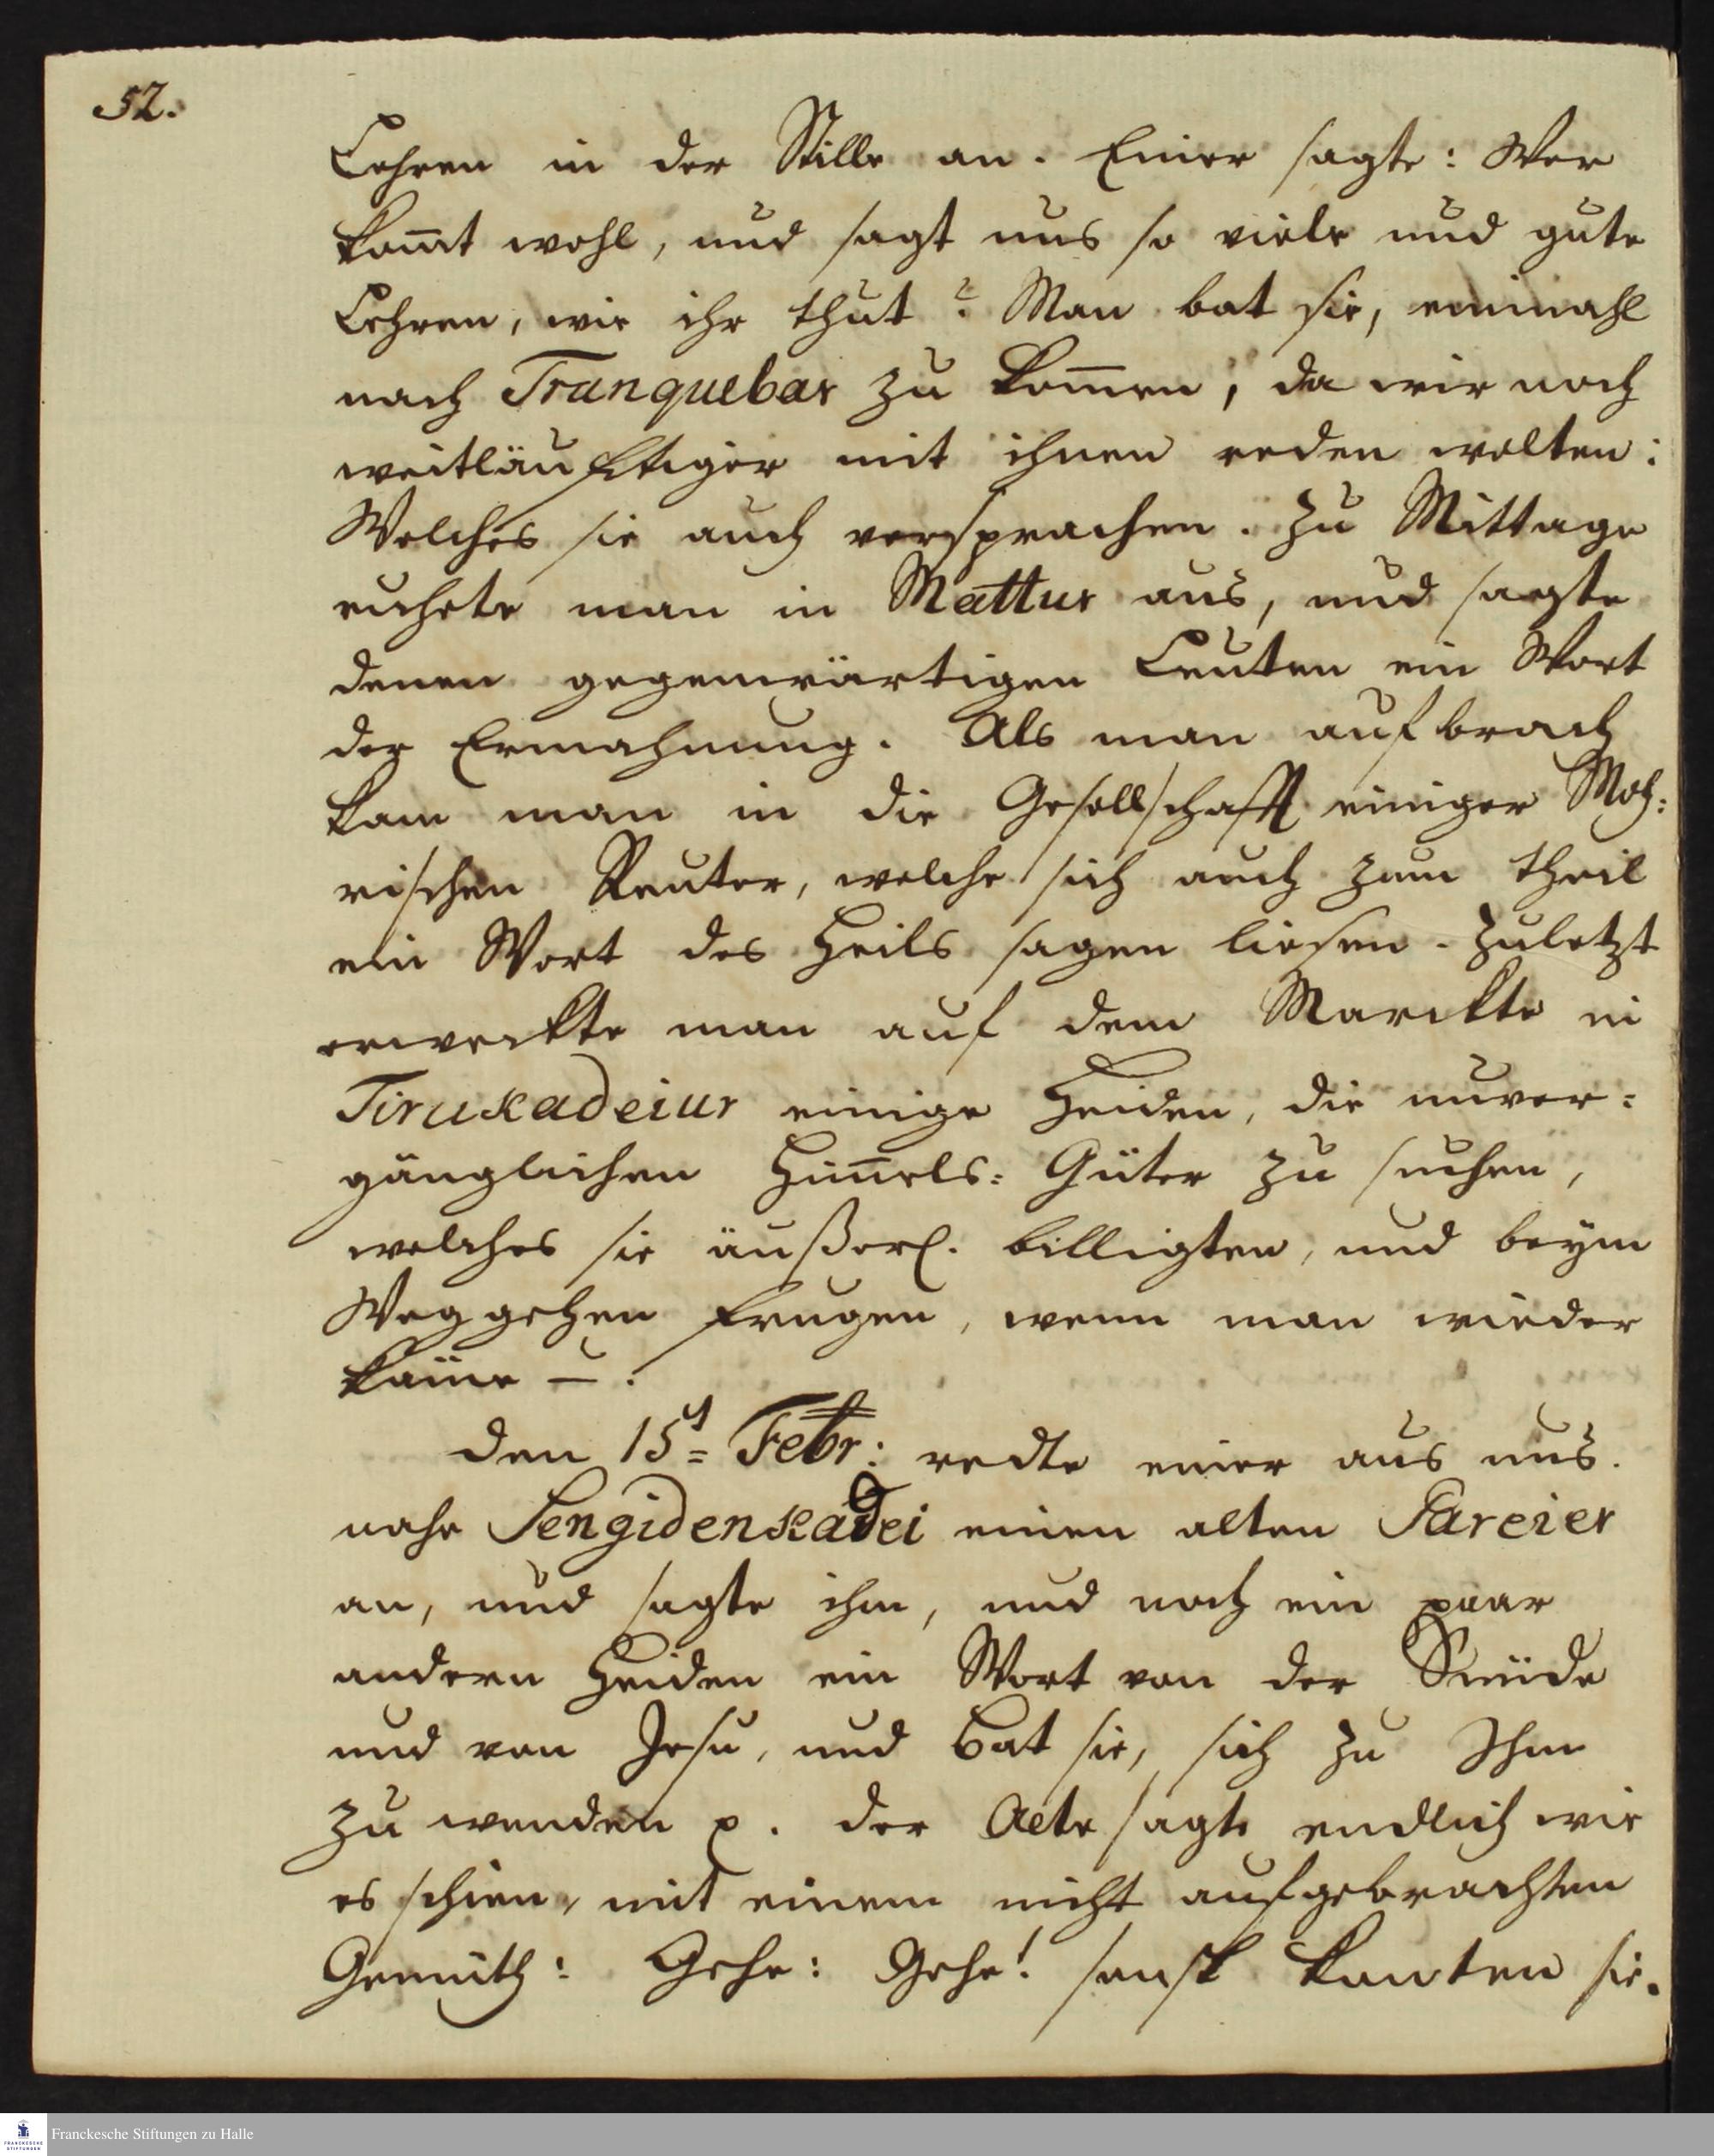 52.
Lehren in der Stille an. Einer sagte: Wer
kom̅t wohl, und sagt uns so viele und gute
Lehren, wie ihr thut? Man bat sie, einmahl
nach Tranquebar zu kom̅en, da wir noch
weitläufftiger mit ihnen reden wolten:
Welches sie auch versprachen. Zu Mittage
ruhete man in Mattur aus, und sagte
denen gegenwärtigen Leuten ein Wort
der Ermahnung. Als man aufbrach
kam man in die Gesellschafft einiger Moh:
rischen Reuter, welche sich auch zum theil
ein Wort des Heils sagen liesen. Zuletzt
erweckte man auf dem Marckte in
Tirukadeiur einige Heiden, die unver:
gänglichen Him̅els: Güter zu suchen,
welches sie äußerl. billigten, und beym
Weggehen frugen, wenn man wieder
käme –.
den 15t= Febr: redte einer aus uns.
nahe Sengidenkadei einen alten Pareier
an, und sagte ihm, und noch ein paar
andern Heiden ein Wort von der Sünde
und von Jesu, und bat sie, sich zu Ihm
zu wenden p. der Alte sagte endlich wie
es schien, mit einem nicht aufgebrachten
Gemüth: Gehe: Gehe! sonst konten sie.
Franckesche Stiftungen zu Halle
FRANCKESCHE
STIFTUNGEN